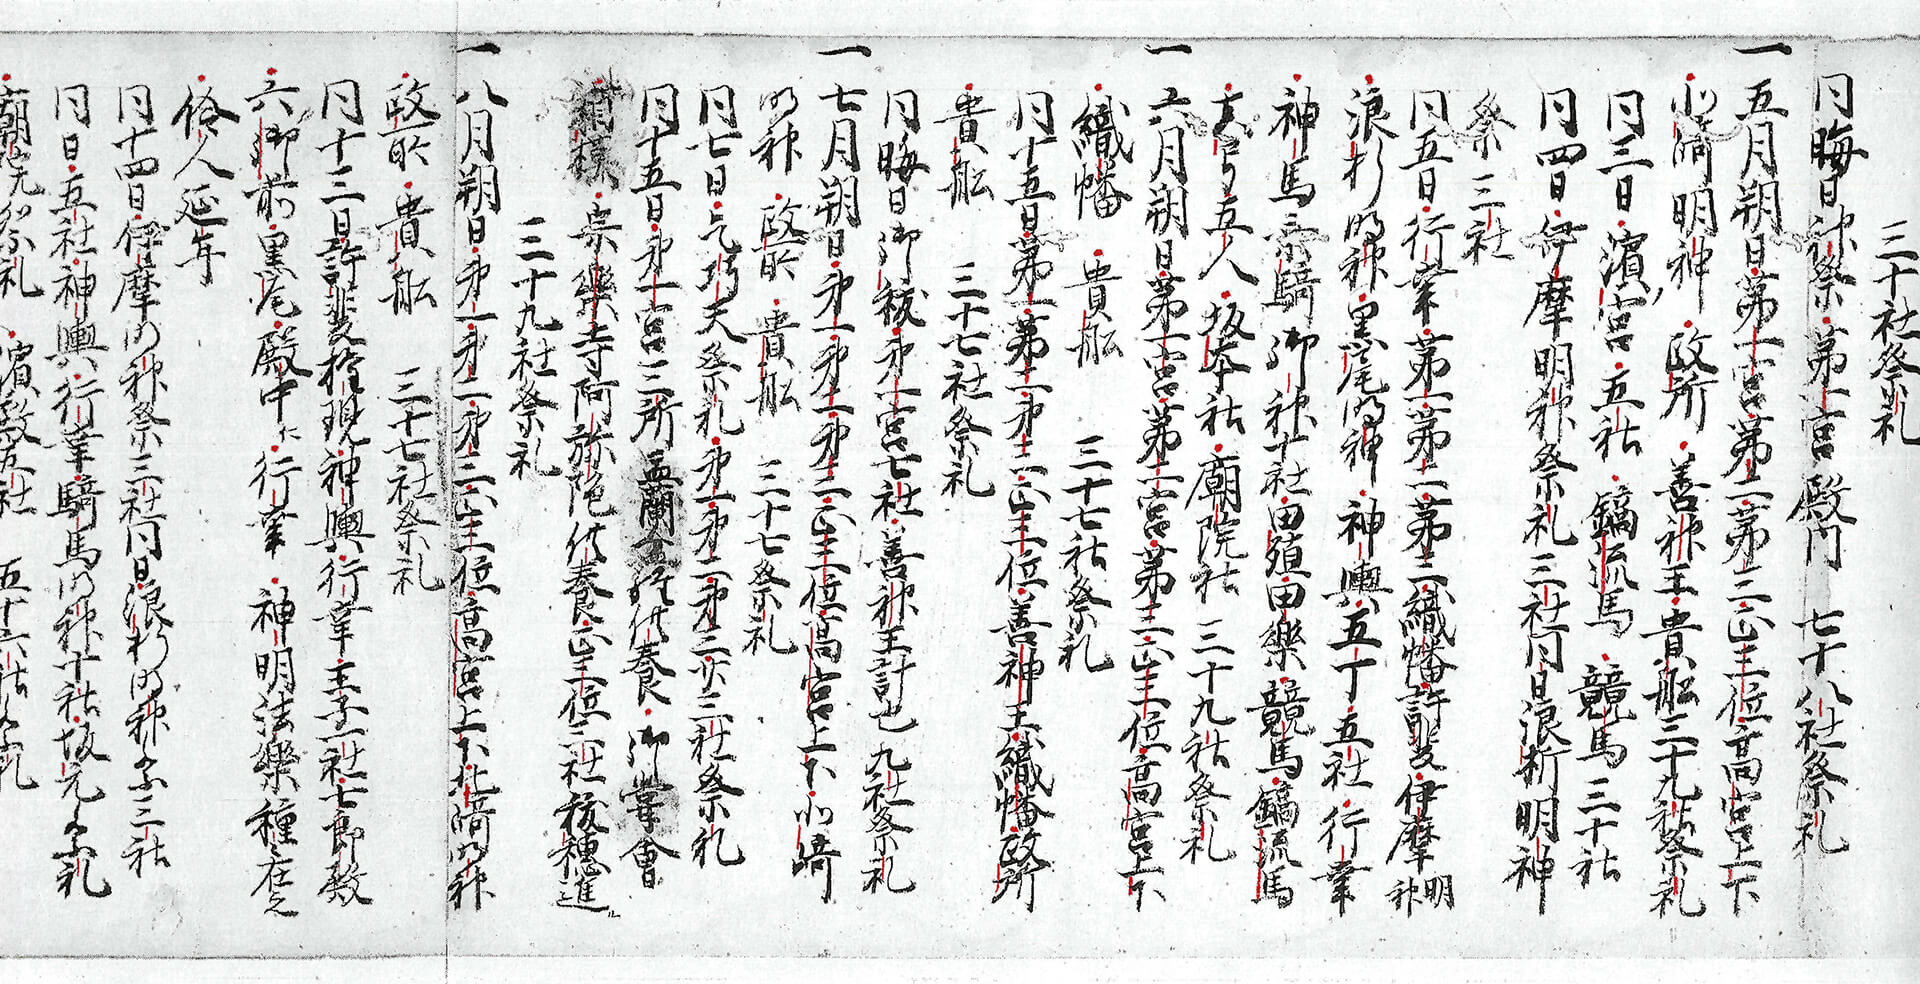 三十社祭礼
同晦日神祭第一宮殿門　七十八社祭礼
一五月朔日第一宮第二第三正三位高宮上下
北崎明神　政所　善神王貴船三十九社祭礼
同三日濱宮五社　鏑流馬　競馬三十社
同四日伊摩明神祭礼三社同日浪折明神
祭三社
同五日行幸第一第二第三織幡許斐伊摩明神
浪折明神黒尾明神　神輿五丁五社行幸
神馬乗騎御神十社田殖田樂競馬鏑流馬
五人坂本社廟院社三十九社祭礼
一六月朔日第一宮第二宮第三正三位高宮上下
織幡　貴船　三十七社祭礼
同十五日第一第二第三正三位善神王織幡政所
貴船　三十七社祭礼
同晦日御祓第一宮七社善神王計也九社祭礼
一七月朔日第一第二第三正三位高宮上下北崎
明神　政所　貴船　三十七祭礼
同七日乞巧天祭礼第一第二第三以三社祭礼
同十五日第一宮三所盂蘭盆経供養御掌會
相撲　楽寺阿弥陀供養正三位三社祓穂進
三十九社祭礼
一八月朔日第一第二第三正三位高宮上下北崎明神
政所　貴船　三十七社祭礼
同十三日許斐権現神輿行幸王子一社七郎殿
六御前黒尾殿中ニ行幸　神明法樂種在之
倫人延年
同十四日伊摩明神祭三社同日浪折明神祭三社
同日五社神輿行幸騎馬明神十社坂元祭礼
廟院祭礼　濱殿五社　五十六社祭礼